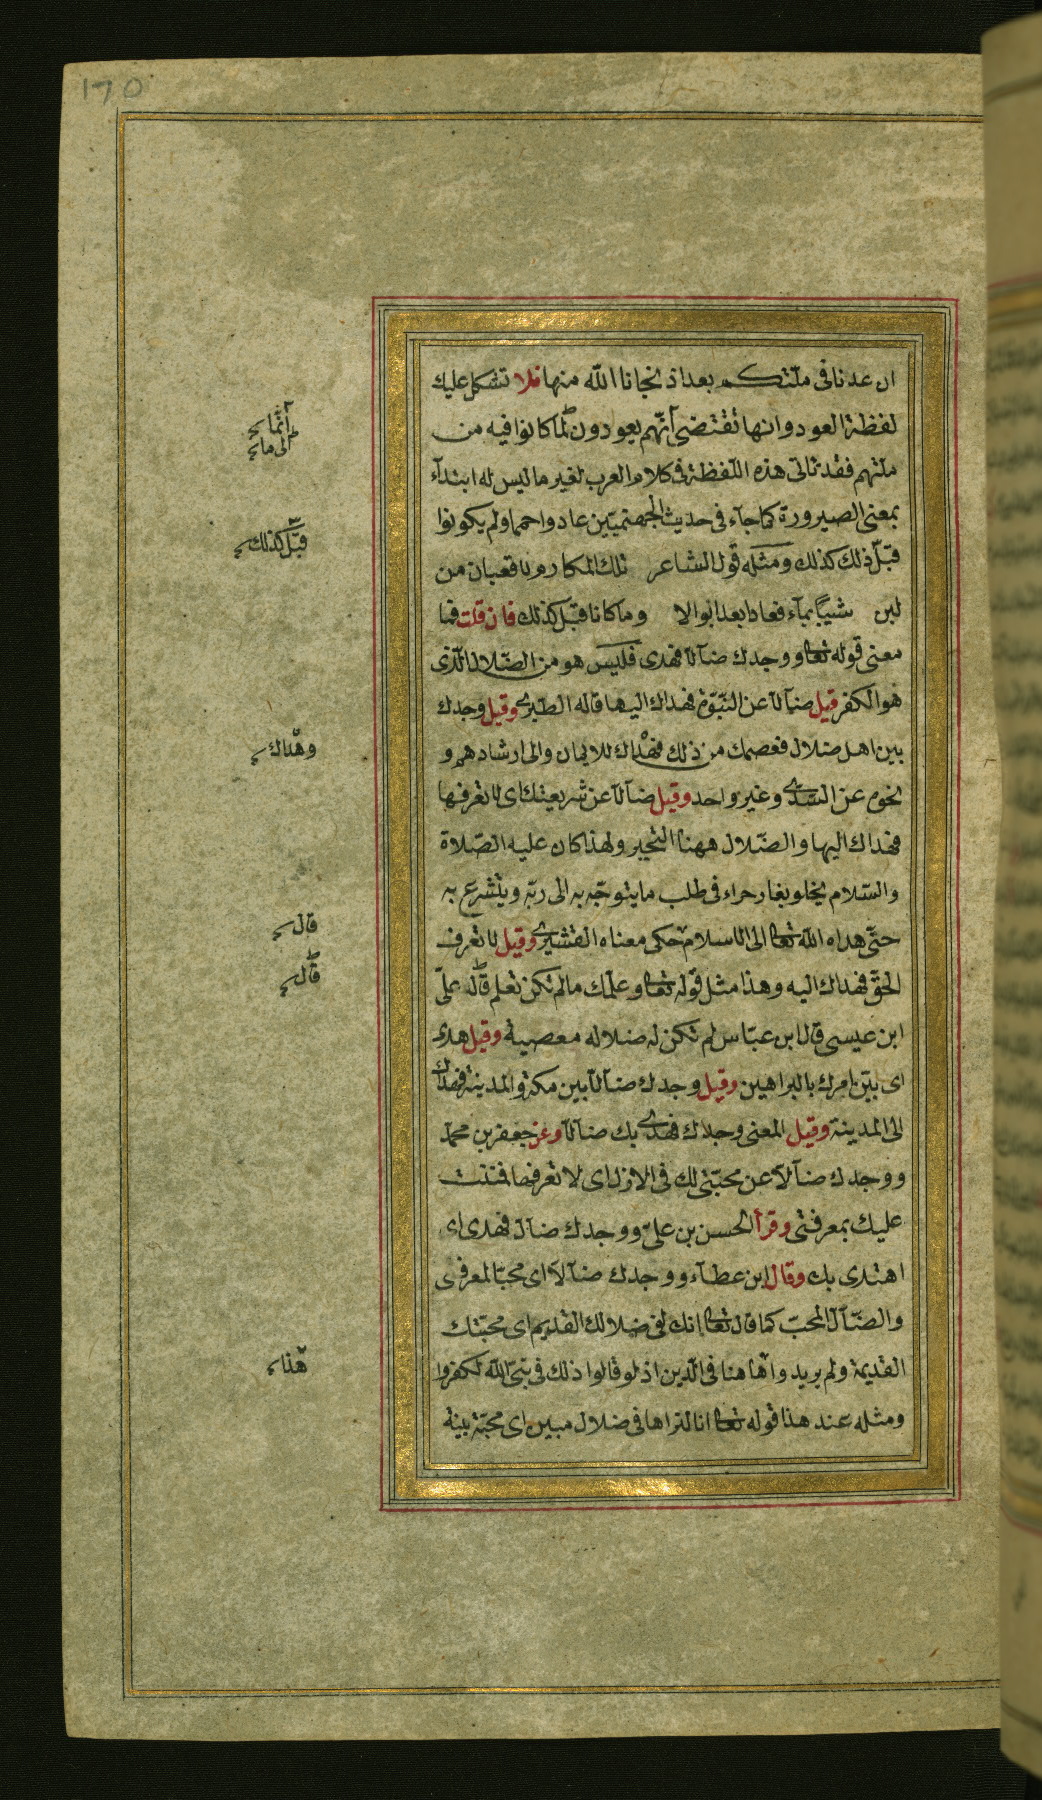 170
ان عدنا في ملتكم بعد اذ نجانا الله منها فلا تشكل عليك
لفظة العود وانها تقتضي أنهم يعودون لما كانوا فيه من
ملتهم فقد تاتي هذه اللفظة في كلام العرب لغير ما ليس له ابتدآء
بمعنى الصيرورة كما جآء في حديث الجهنميين عادوا حمما ولم يكونوا
قبل ذلك كذلك ومثله قول الشاعر تلك المكارم لا قعبان من
لبن شيبا بمآء فعادا بعد ابوالا وما كانا قبل كذلك فان قلت فما
معنى قوله تعا ووجدك ضآلا فهدى فليس هو من الضلال الذى
هو الكفر قيل ضآلا عن النبوة فهداك اليها قاله الطبرى وقيل وجدك
بين اهل ضلال فعصمك من ذلك فهداك للايمان والى ارشادهم و
نحوه عن السدى وغير واحد وقيل ضآلا عن شريعتك اى لا تعرفها
فهداك اليها والضلال ههنا التحير ولهذا كان عليه الصلاة
والسلام يخلو بغار حراء في طلب ما يتوجه به الى ربه ويتشرع به
حتى هداه الله تعا الى الاسلام حكى معناه القشيرى وقيل لا تعرف
الحق فهداك اليه وهذا مثل قوله تعا وعلمك ما لم تكن تعلم قاله على
ابن عيسى قال ابن عباس لم تكن له ضلالة معصية وقيل هدى
اى بين امرك بالبراهين وقيل وجدك ضآلا بين مكة والمدينة فهداك
الى المدينة وقيل المعنى وجدك فهدى بك ضآلا وعن جعفر بن محمد
ووجدك ضآلا عن محبتي لك في الازل اى لا تعرفها فمننت
عليك بمعرفتي وقرأ الحسن بن على ووجدك ضآل فهدى اى
اهتدى بك وقال ابن عطآء ووجدك ضآلا اى محبا لمعرفتى
والضآل المحب كما قال تعا انك لفي ضلالك القديم اى محبتك
القديمة ولم يريدوا هاهنا في الدين اذ لو قالوا ذلك في نبي الله لكفروا
ومثله عند هذا قوله تعا انا لنراها في ضلال مبين اى محبة بينة
أنما
الى ما
قبل كذلك
وهداك
قال
قال
هذا